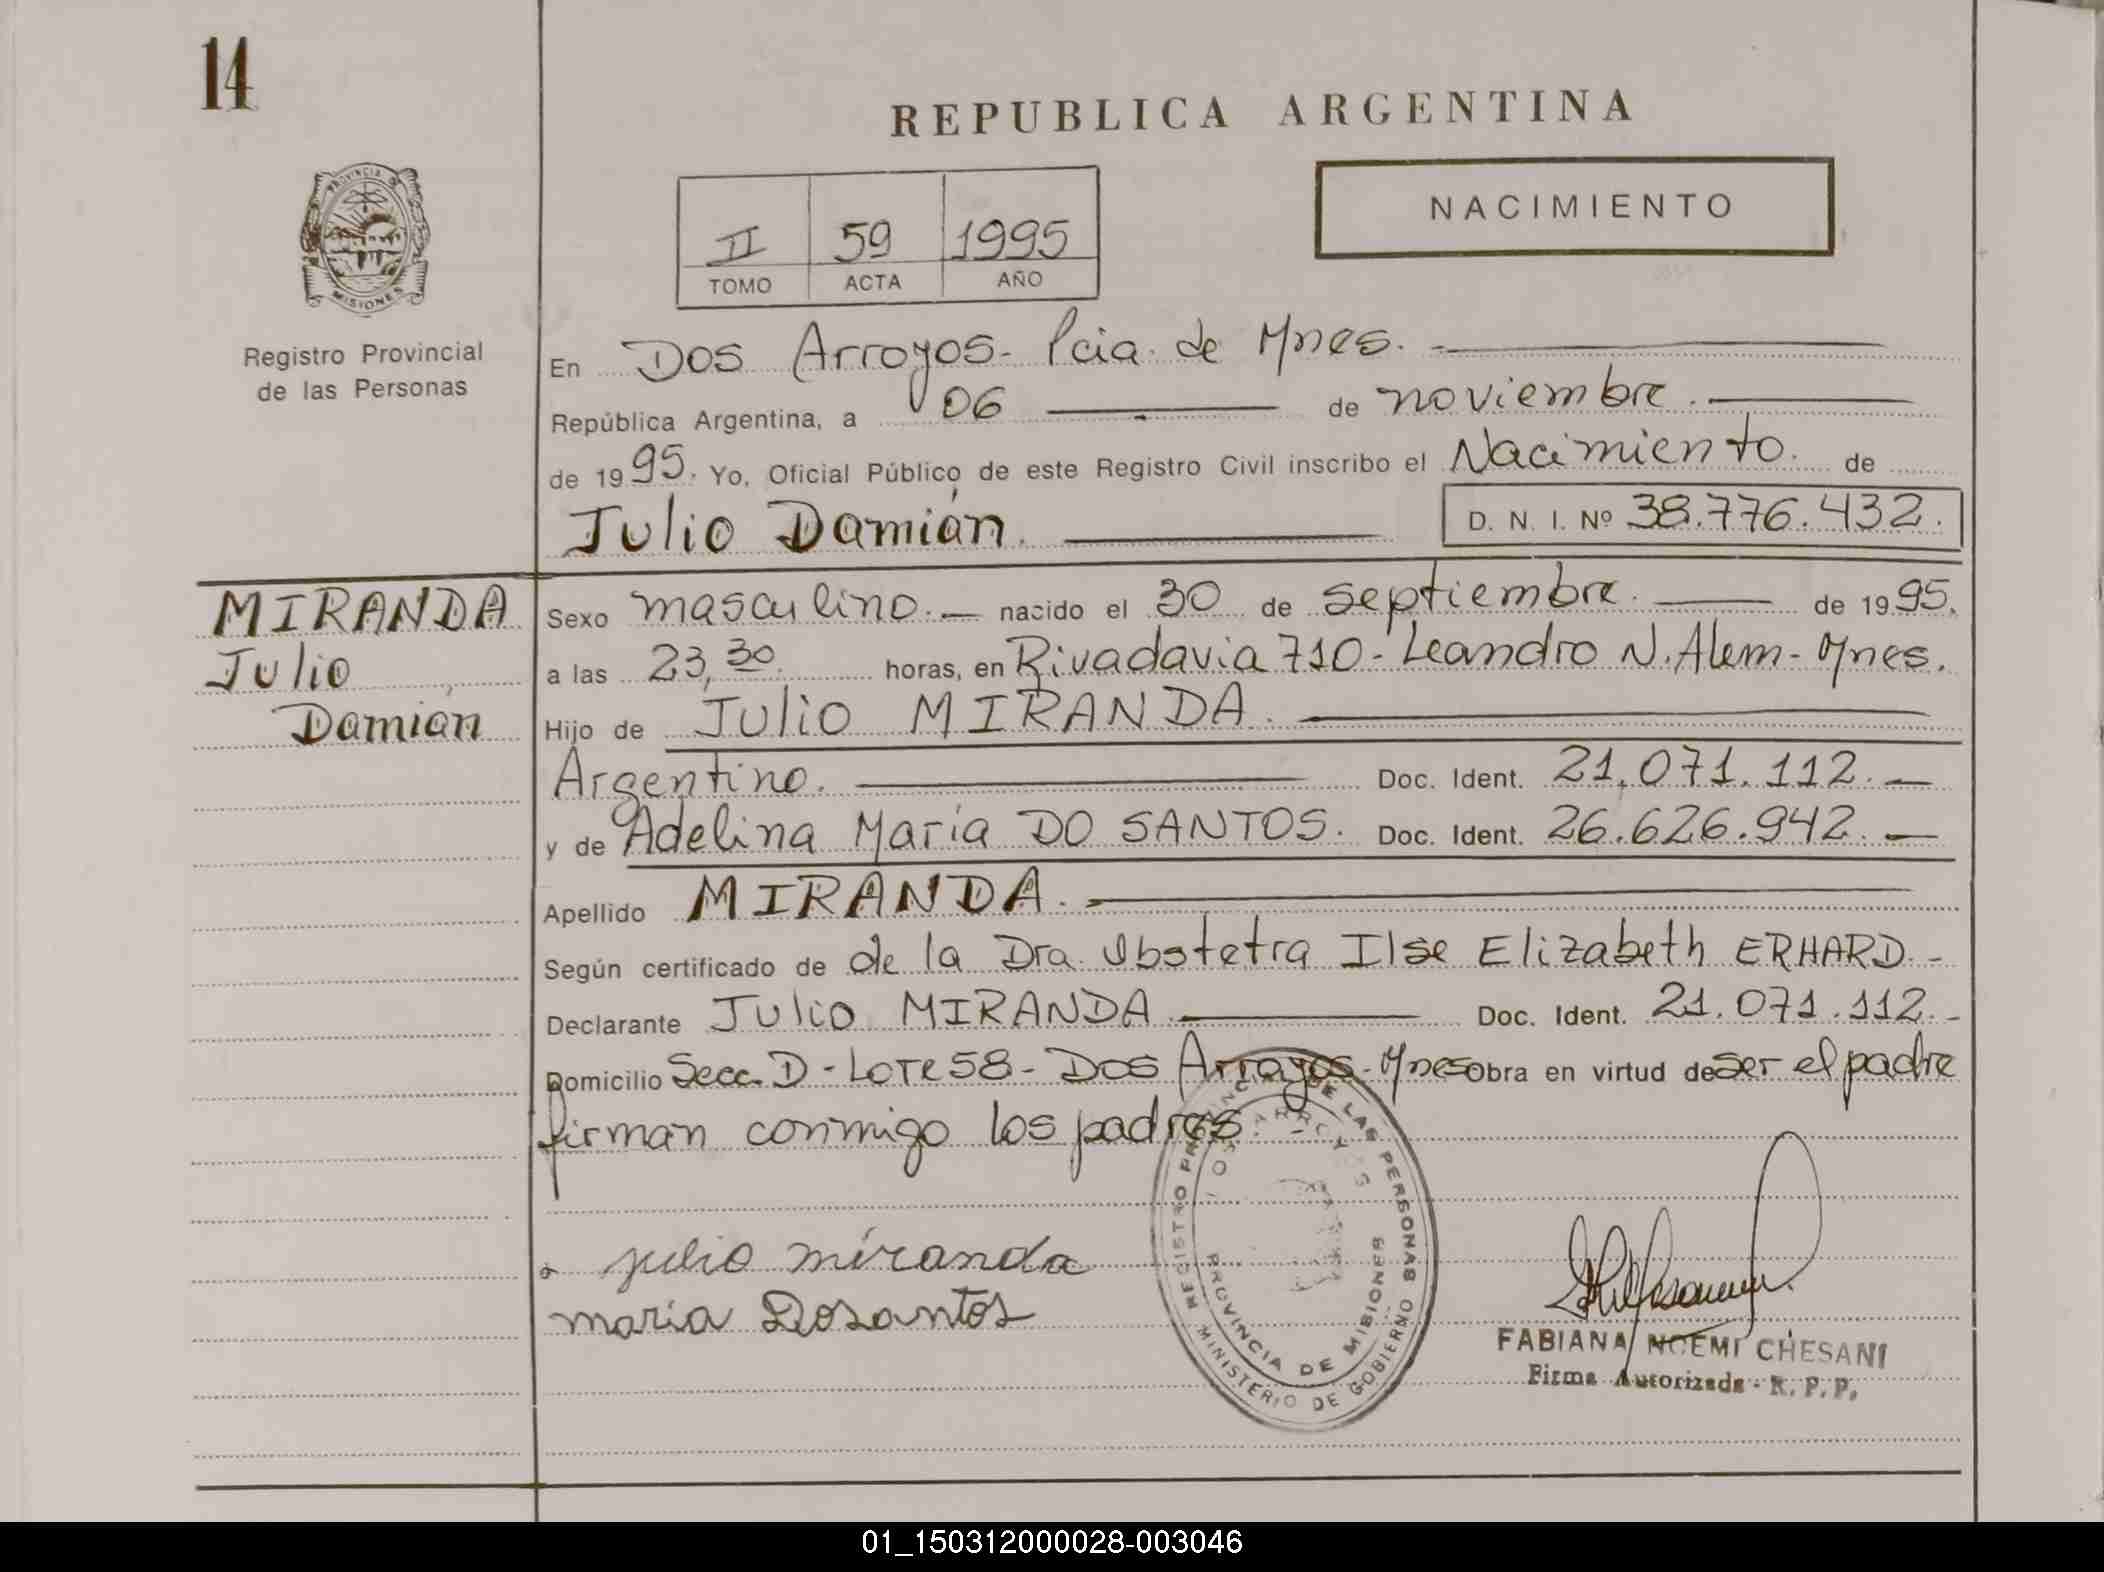 14
REPUBLICA ARGENTINA
NACIMIENTO
II 59 1995
TOMO ACTA AÑO
PROVINCIA DE
MISIONES
Registro Provincial
de las Personas
En Dos Arroyos - Pcia. de Mnes.
República Argentina, a 06 de noviembre.
de 1995. Yo, Oficial Público de este Registro Civil inscribo el Nacimiento. de
Julio Damián. D. N. I. Nº 38.776.432.
MIRANDA
Julio
Damián
Sexo masculino. nacido el 30 de septiembre. de 1995.
a las 23,30. horas, en Rivadavia 710 - Leandro N. Alem - Mnes.
Hijo de Julio MIRANDA.
Argentino. Doc. Ident. 21.071.112.
y de Adelina María DO SANTOS. Doc. Ident. 26.626.942.
Apellido MIRANDA.
Según certificado de de la Dra. Obstetra Ilse Elizabeth ERHARD.
Declarante Julio MIRANDA Doc. Ident. 21.071.112.
Domicilio Secc. D - Lote 58 - Dos Arroyos - Mnes obra en virtud de ser el padre
firman conmigo los padres.
julio miranda
maria Dosantos
REGISTRO PROVINCIAL DE LAS PERSONAS
DOS ARROYOS
PROVINCIA DE MISIONES
MINISTERIO DE GOBIERNO
FABIANA NOEMI CHESANI
Firma Autorizada - R. P. P.
01_150312000028-003046